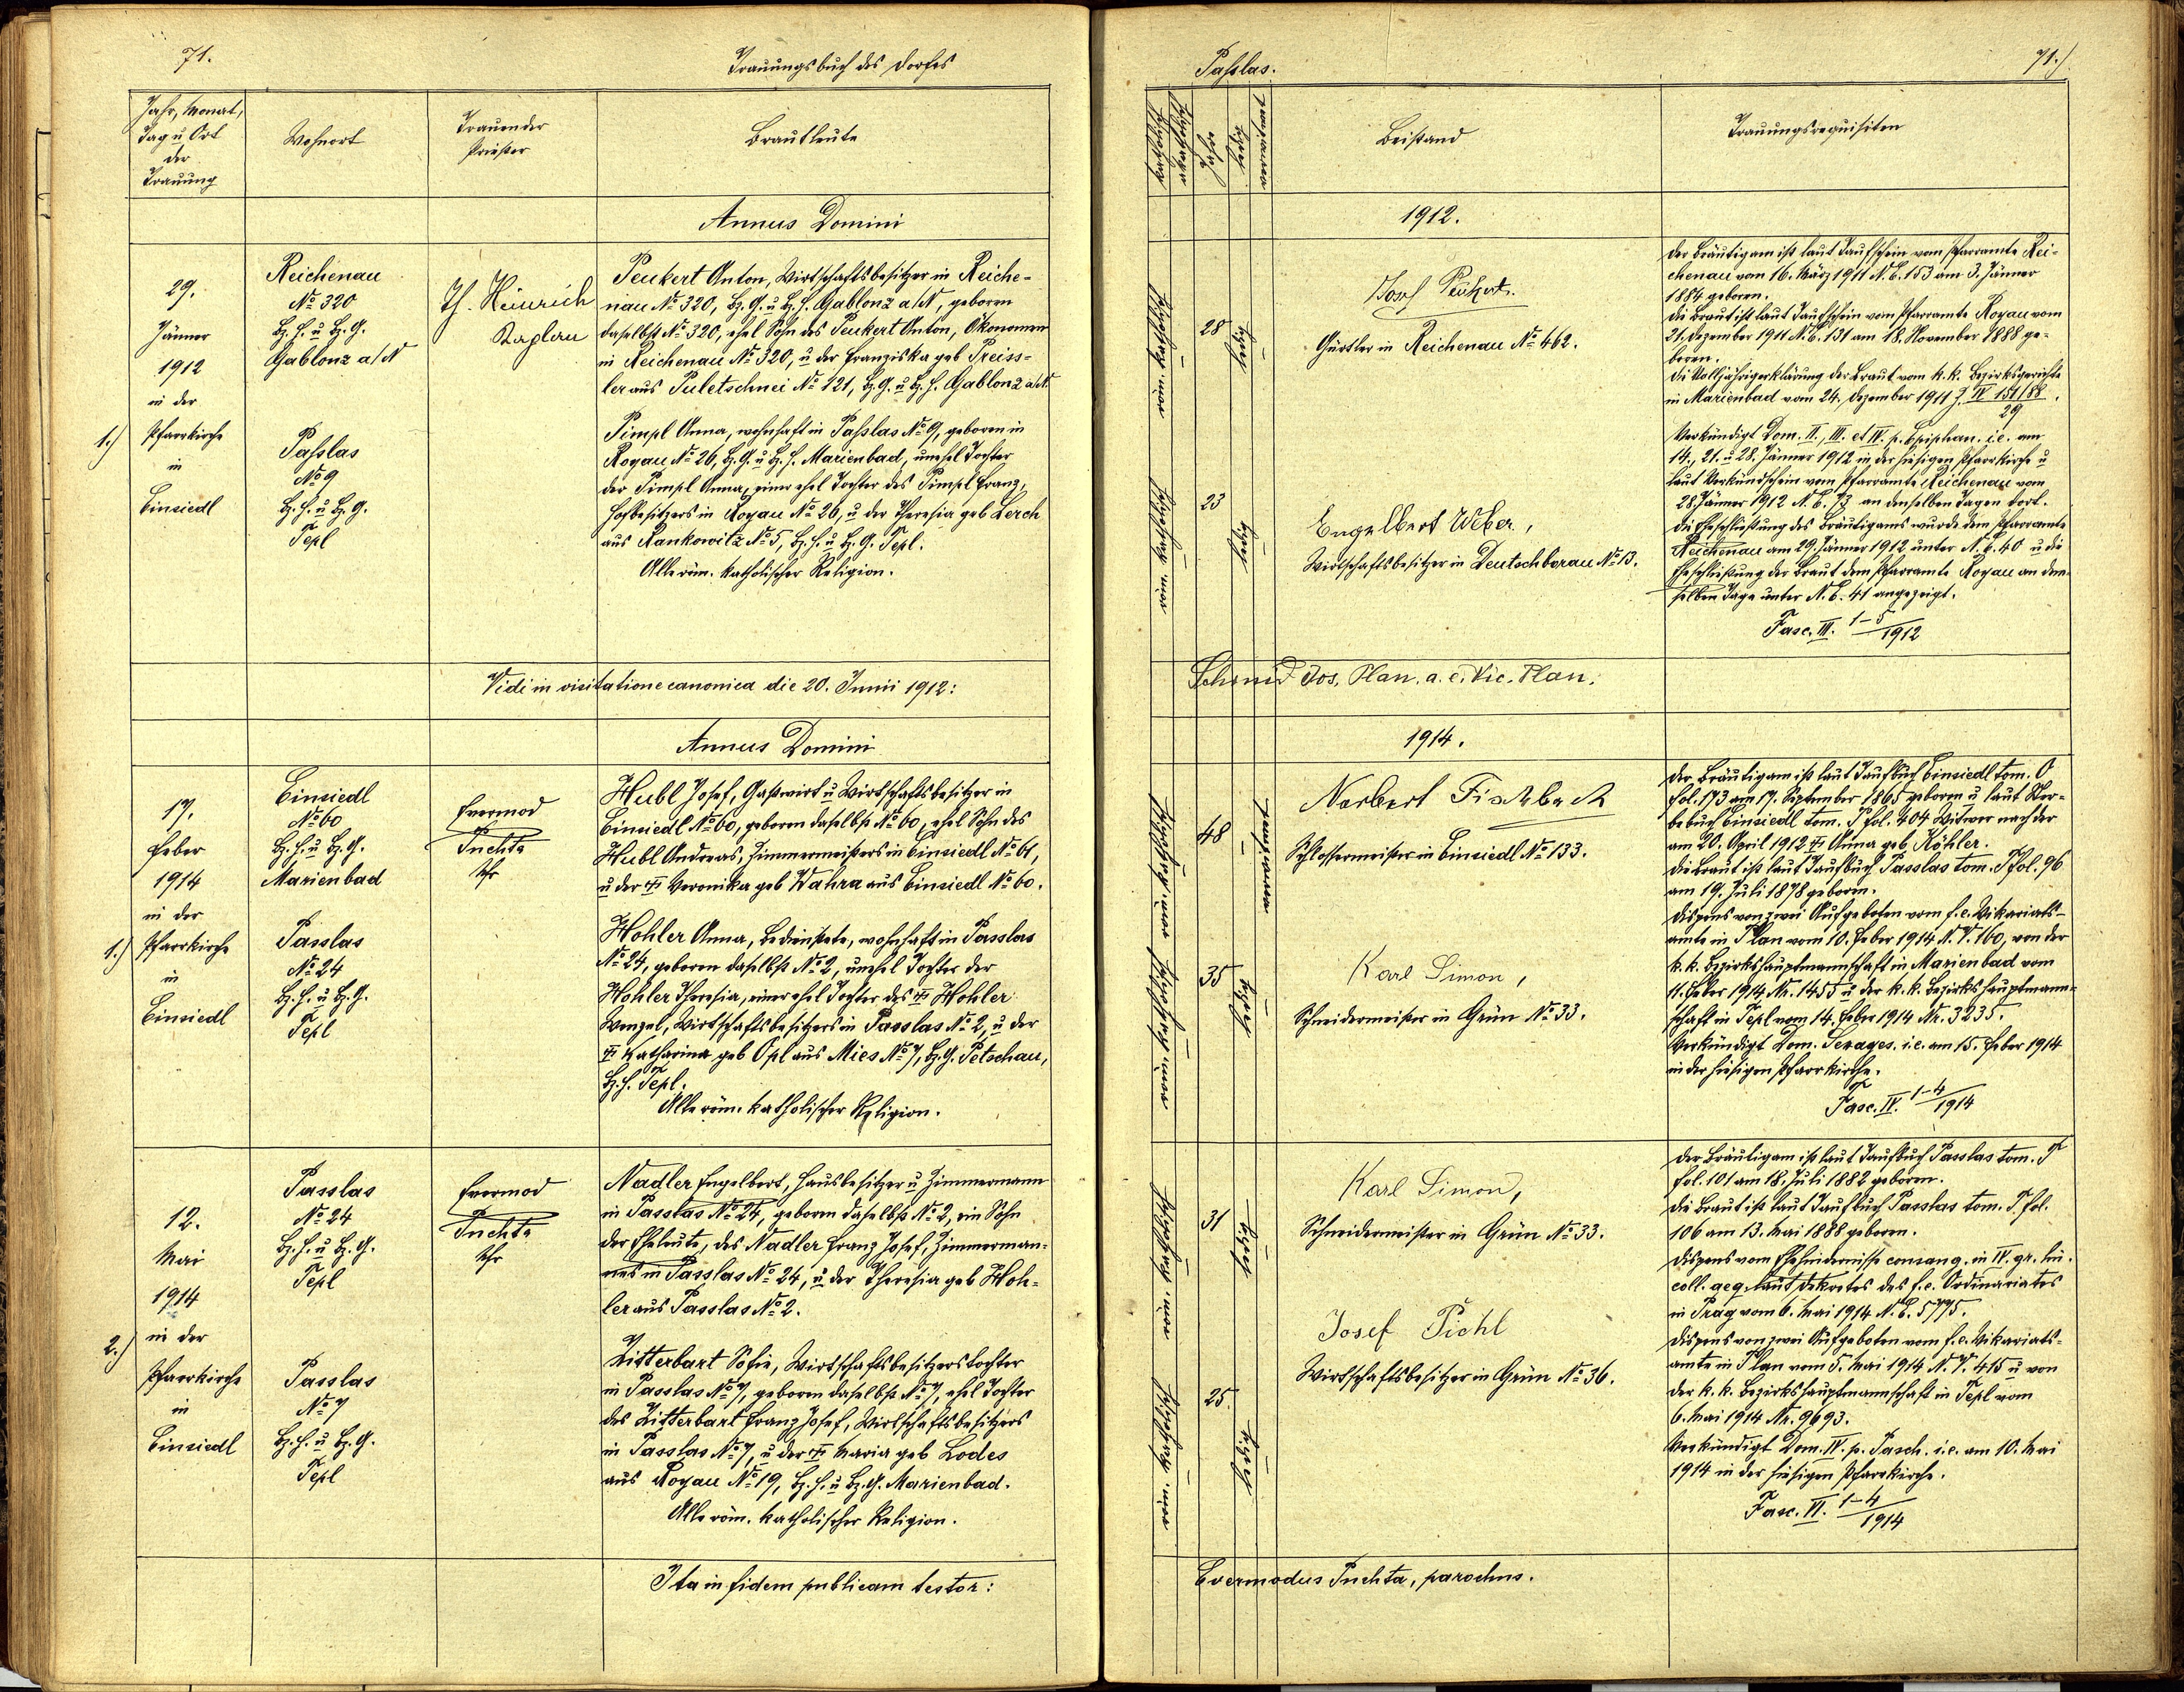 71.
Trauungsbuch des Dorfes
Jahr, Monat,
Tag u Ort
der
Trauung
Wohnort
Trauender
Priester
Brautleute
Annus Domini
1.)
29.
Jänner
1912
in der
Pfarrkirche
in
Einsiedl
Reichenau
No 320
Bz. H. u Bz. G.
Gablonz a/N
Passlas
No 9
Bz. H. u Bz. G.
Tepl
Th. Heinrich
Kaplan
Peukert Anton, Wirtschaftsbesitzer in Reiche-
nau No 320, Bz. G. u Bz. H. Gablonz a/N, geboren
daselbst No 320, ehel Sohn des Peukert Anton, Ökonomen
in Reichenau No 320, u der Franziska geb Preiss-
ler aus Puletschnei No 121, Bz. G. u Bz. H. Gablonz a/N.
Pimpl Anna, wohnhaft in Passlas No 9, geboren in
Royau No 26, Bz. G. u Bz. H. Marienbad, unehel Tochter
der Pimpl Anna, einer ehel Tochter des Pimpl Franz,
Hofbesitzers in Royau No 26, u der Theresia geb Lerch
aus Rankowitz No 5, Bz. H. u Bz. G. Tepl.
Alle röm. katholischer Religion.
Vidi in visitatione canonica die 20. Junii 1912:
Annus Domini
1.)
17.
Feber
1914
in der
Pfarrkirche
in
Einsiedl
Einsiedl
No 60
Bz. H. u Bz. G.
Marienbad
Passlas
No 24
Bz. H. u Bz. G.
Tepl
Evermod
Puchta
Pfr
Hubl Josef, Gastwirt u Wirtschaftsbesitzer in
Einsiedl No 60, geboren daselbst No 60, ehel Sohn des
Hubl Andreas, Zimmermeisters in Einsiedl No 61,
u der † Veronika geb Wahra aus Einsiedl No 60.
Hohler Anna, Bedienstete, wohnhaft in Passlas
No 24, geboren daselbst No 2, unehel Tochter der
Hohler Theresia, einer ehel Tochter des † Hohler
Wenzel, Wirtschaftsbesitzers in Passlas No 2, u der
† Katharina geb Opl aus Mies No 7, Bz. G. Petschau,
Bz. H. Tepl.
Alle röm. katholischer Religion.
2.)
12.
Mai
1914
in der
Pfarrkirche
in
Einsiedl
Passlas
No 24
Bz. H. u Bz. G.
Tepl
Passlas
No 7
Bz. H. u Bz. G.
Tepl
Evermod
Puchta
Pfr
Nadler Engelbert, Hausbesitzer u Zimmermann
in Passlas No 24, geboren daselbst No 2, ein Sohn
der Eheleute, des Nadler Franz Josef, Zimmerman-
nes in Passlas No 24, u der Theresia geb Hoh-
ler aus Passlas No 2.
Zitterbart Sofie, Wirtschaftsbesitzerstochter
in Passlas No 7, geboren daselbst No 7, ehel Tochter
des Zitterbart Franz Josef, Wirtschaftsbesitzers
in Passlas No 7, u der † Maria geb Lodes
aus Royau No 19, Bz. H. u Bz. G. Marienbad.
Alle röm. katholischer Religion.
Ita in fidem publicam testor:
Passlas.
71.)
Katholisch
Akatholisch
Jahre
ledig
verwitwet
Beistand
Trauungsrequisiten
1912.
röm. katholisch
28
ledig
röm. katholisch
23
ledig
Josef Peukert.
Gürtler in Reichenau No 462.
Engelbert Weber,
Wirtschaftsbesitzer in Deutschborau No 13.
Der Bräutigam ist laut Taufschein vom Pfarramte Rei-
chenau vom 16. März 1911 N. E. 153 am 3. Jänner
1884 geboren.
Die Braut ist laut Taufschein vom Pfarramte Royau vom
21. Dezember 1911 N. E. 131 am 18. November 1888 ge-
boren.
Die Volljährigerklärung der Braut vom k. k. Bezirksgerichte
in Marienbad vom 24. Dezember 1911 Z. IV 151/88.
29
Verkündigt Dom. II., III. et IV. p. Epiphan. i. e. am
14., 21. u 28. Jänner 1912 in der hiesigen Pfarrkirche u
laut Verkündschein vom Pfarramte Reichenau vom
28. Jänner 1912 N. E. 73 an denselben Tagen dort.
Die Eheschließung des Bräutigams wurde dem Pfarramte
Reichenau am 29. Jänner 1912 unter N. E. 40 u die
Eheschließung der Braut dem Pfarramte Royau an dem-
selben Tage unter N. E. 41 angezeigt.
Fasc. III. 1-5/1912
Schmid Jos. Plan. a. e. Vic. Plan.
1914.
röm. katholisch
48
verwitwet
röm. katholisch
35
ledig
Norbert Fischbach
Schlossermeister in Einsiedl No 133.
Karl Simon,
Schneidermeister in Grün No 33.
Der Bräutigam ist laut Taufbuch Einsiedl tom. O
fol. 173 am 17. September 1865 geboren u laut Ster-
bebuch Einsiedl tom. P fol. 404 Witwer nach der
am 20. April 1912 † Anna geb Köhler.
Die Braut ist laut Taufbuch Passlas tom. P fol. 96
am 19. Juli 1878 geboren.
Dispens von zwei Aufgeboten vom f. e. Vikariats-
amte in Plan vom 10. Feber 1914 N. V. 160, von der
k. k. Bezirkshauptmannschaft in Marienbad vom
11. Feber 1914 Nr. 1455 u der k. k. Bezirkshauptmann-
schaft in Tepl vom 14. Feber 1914 Nr. 3235.
Verkündigt Dom. Sexages. i. e. am 15. Feber 1914
in der hiesigen Pfarrkirche.
Fasc. IV. 1-4/1914
röm. katholisch
31
ledig
röm. katholisch
25.
ledig
Karl Simon,
Schneidermeister in Grün No 33.
Josef Pichl
Wirtschaftsbesitzer in Grün No 36.
Der Bräutigam ist laut Taufbuch Passlas tom. P
fol. 101 am 18. Juli 1882 geboren.
Die Braut ist laut Taufbuch Passlas tom. P. fol.
106 am 13. Mai 1888 geboren.
Dispens vom Ehehindernisse consang. in IV. gr. lin.
coll. aeq. laut Dekretes des f. e. Ordinariates
in Prag vom 6. Mai 1914 N. E. 5775.
Dispens von zwei Aufgeboten vom f. e. Vikariats-
amte in Plan vom 5. Mai 1914 N. V. 415 u von
der k. k. Bezirkshauptmannschaft in Tepl vom
6. Mai 1914 Nr. 9693.
Verkündigt Dom. IV. p. Pasch. i. e. am 10. Mai
1914 in der hiesigen Pfarrkirche.
Fasc. VI. 1-4/1914
Evermodus Puchta, parochus.